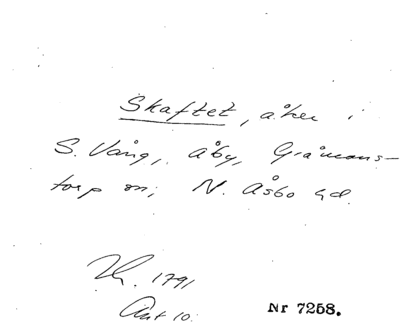 Skaftet, åker i
S. Vång, Åby, Gråmans-
torp sn, N. Åsbo hd.
1791
Akt 10.
Nr 7258.